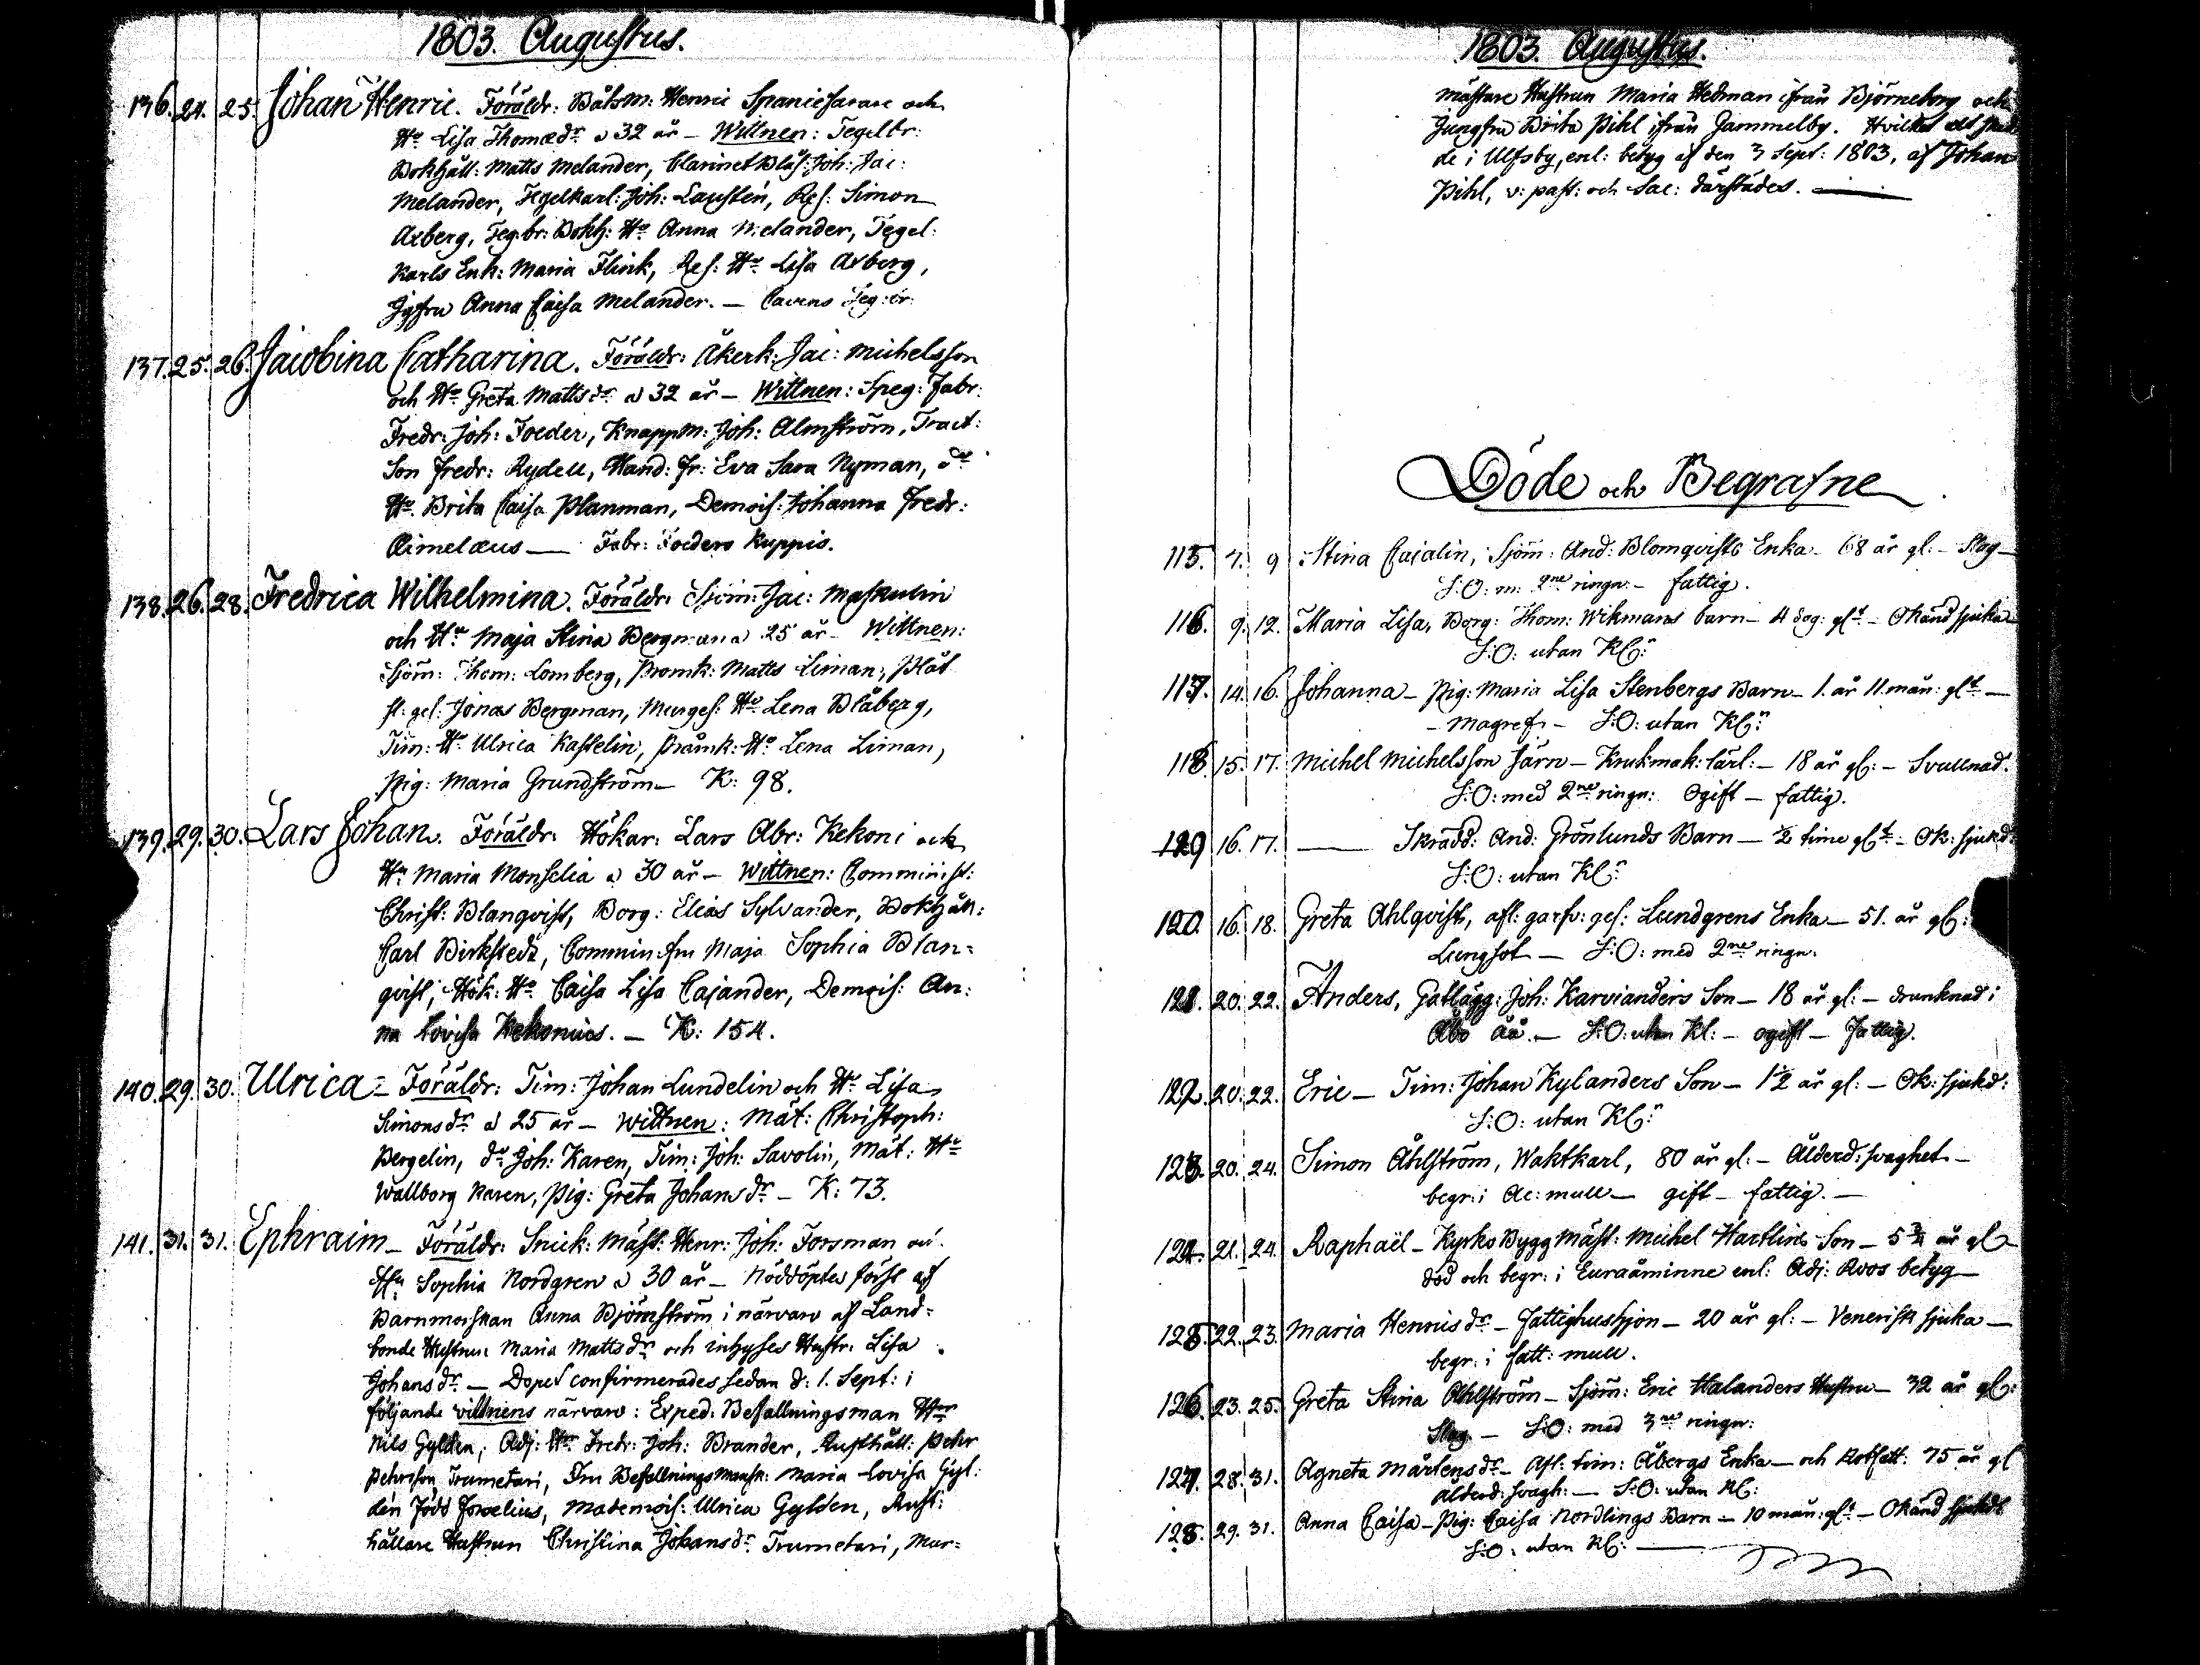 1803. Augustus.
136. 24. 25. Johan Henric. Föräldr: Båtsm: Henric Spaniefarare och
Hu Lisa Thomædr a 32 år – Wittnen: Tegelbr:
Bokhåll: Matts Melander, Clarinet Blås: Joh: Jac:
Melander, Tegelkarl: Joh: Lausten, Ref: Simon
Axberg, Teg:br: Bokh: Hu Anna Melander, Tegel:
karls Enk: Maria Flink, Ref: Hu Lisa Axberg,
Jgfru Anna Caisa Melander. – Cavens Teg:br:
137. 25. 26. Jacobina Catharina. Föräldr: Åkerk: Jac: Michelsson
och Hu Greta Mattsdr a 32 år – Wittnen: Speg: Fabr:
Fredr: Joh: Foeder, Knappm: Joh: Almström, Tract:
Son Fredr: Rydell, Hand: fr: Eva Sara Nyman, do
Hu Brita Caisa Planman, Demois: Johanna Fredr:
Aimelæus — Fabr: Foeders Kuppis.
138. 26. 28. Fredrica Wilhelmina. Föräldr: Sjöm: Jac: Maskulin
och Hu Maja Stina Bergman a 25 år – Wittnen:
Sjöm: Thom: Lomberg, Promk: Matts Liman, Plåt
sl: ges: Jonas Bergman, Murges: Hu Lena Blåberg,
Tim: Hu Ulrica Kastelin, Pråmk: Hu Lena Liman,
Pig: Maria Grundström – K: 98.
139. 29. 30. Lars Johan. Föräldr: Hökar: Lars Abr: Kekoni och
Hu Maria Monselia a 30 år – Wittnen: Comminist:
Christ: Blanqvist, Borg: Elias Sylvander, Bokhåll:
Carl Birkstedt, Commin:fru Maja Sophia Blan=
qvist, Hök: Hu Caisa Lisa Cajander, Demois: An:
na Lovisa Kekonius. – K: 154.
140. 29. 30. Ulrica – Föräldr: Tim: Johan Lundelin och Hu Lisa
Simonsdr a 25 år – Wittnen: Mät: Christoph:
Bergelin, do Joh: Karen, Tim: Joh: Savolin, Mät: Hu
Wallborg Karen, Pig: Greta Johansdr – K: 73.
141. 31. 31. Ephraim – Föräldr: Snick: Mäst: Henr: Joh: Forsman och
Hu Sophia Nordgren a 30 år – Nöddöptes först af
Barnmorskan Anna Björnström i närvaro af Land=
bonde Hustrun Maria Mattsdr och inhyses Hustr: Lisa
Johansdr – Dopet confirmerades sedan d: 1. Sept: i
följande vittnens närvaro: Exped: Befallningsman Herr
Nils Gylden, Adj: Hr Fredr: Joh: Brander, Rusthåll: Pehr
Pehrsson Trumetari, Fru Befallningsmansk: Maria Lovisa Gyl:
dén född Forselius, Mademois: Ulrica Gylden, Rust:
hållare Hustrun Christina Johansdr Trumetari, Mur=
1803. Augustus.
mästare Hustrun Maria Hedman ifrån Björneborg och
Jungfru Brita Pihl ifrån Gammelby. Hvilket alt sked
de i Ulfsby, enl: betyg af den 3 Sept: 1803, af Johan
Pihl, v: past: och Sac: därstädes. —
Döde och Begrafne
115. 7. 9 Stina Cajalin, Sjöm: And: Blomqvists Enka – 68 år gl: – Slag –
S:O: m: 2ne ringn: – fattig.
116. 9. 12. Maria Lisa, Borg: Thom: Wikmans barn – 4 dag: glt – Okänd sjuka
S:O: utan Kl:
117. 14. 16. Johanna – Pig: Maria Lisa Stenbergs Barn – 1. år 11. mån: glt –
– Magref: – S:O: utan Kl:
118. 15. 17. Michel Michelsson Järn – Krukmak: lärl: – 18 år gl: – Svullnad.
S:O: med 2ne ringn: Ogift – fattig.
119 16. 17. — Skrädd: And: Grönlunds Barn – ½ time glt – Ok: sjukd:
S:O: utan Kl:
120. 16. 18. Greta Ahlqvist, afl: garfv: ges: Lundgrens Enka – 51. år gl:
Lungsot – S:O: med 2ne ringn:
121. 20. 22. Anders, Gatlägg: Joh: Karvianders Son – 18 år gl: – drunknad i
Åbo åå. – S:O: utan Kl: – ogift – fattig.
122. 20. 22. Eric – Tim: Johan Kylanders Son – 1½ år gl: – Ok: sjukd:
S:O: utan Kl:
123. 20. 24. Simon Åhlström, Waktkarl, 80 år gl: – Ålderd: svaghet –
begr: i Ac: mull – gift – fattig. –
124. 21. 24. Raphaël – Kyrko Bygg Mäst: Michel Hartlins Son – 5 ¾ år gl
död och begr: i Euraåminne enl: Adj: Roos betyg –
125. 22. 23. Maria Henricsdr – Fattighushjon – 20 år gl: – Venerisk sjuka –
begr: i fatt: mull.
126. 23. 25. Greta Stina Ahlström – Sjöm: Eric Halanders Hustru – 32 år gl:
Slag – S:O: med 3ne ringn:
127. 28. 31. Agneta Mårtensdr – Afl: tim: Åbergs Enka – och Rotfatt: 75 år gl
Ålderd: svagh: – S:O: utan Kl:
128. 29. 31. Anna Caisa – Pig: Caisa Nordlings Barn – 10 mån: glt – Okänd sjukd:
S:O: utan Kl: —